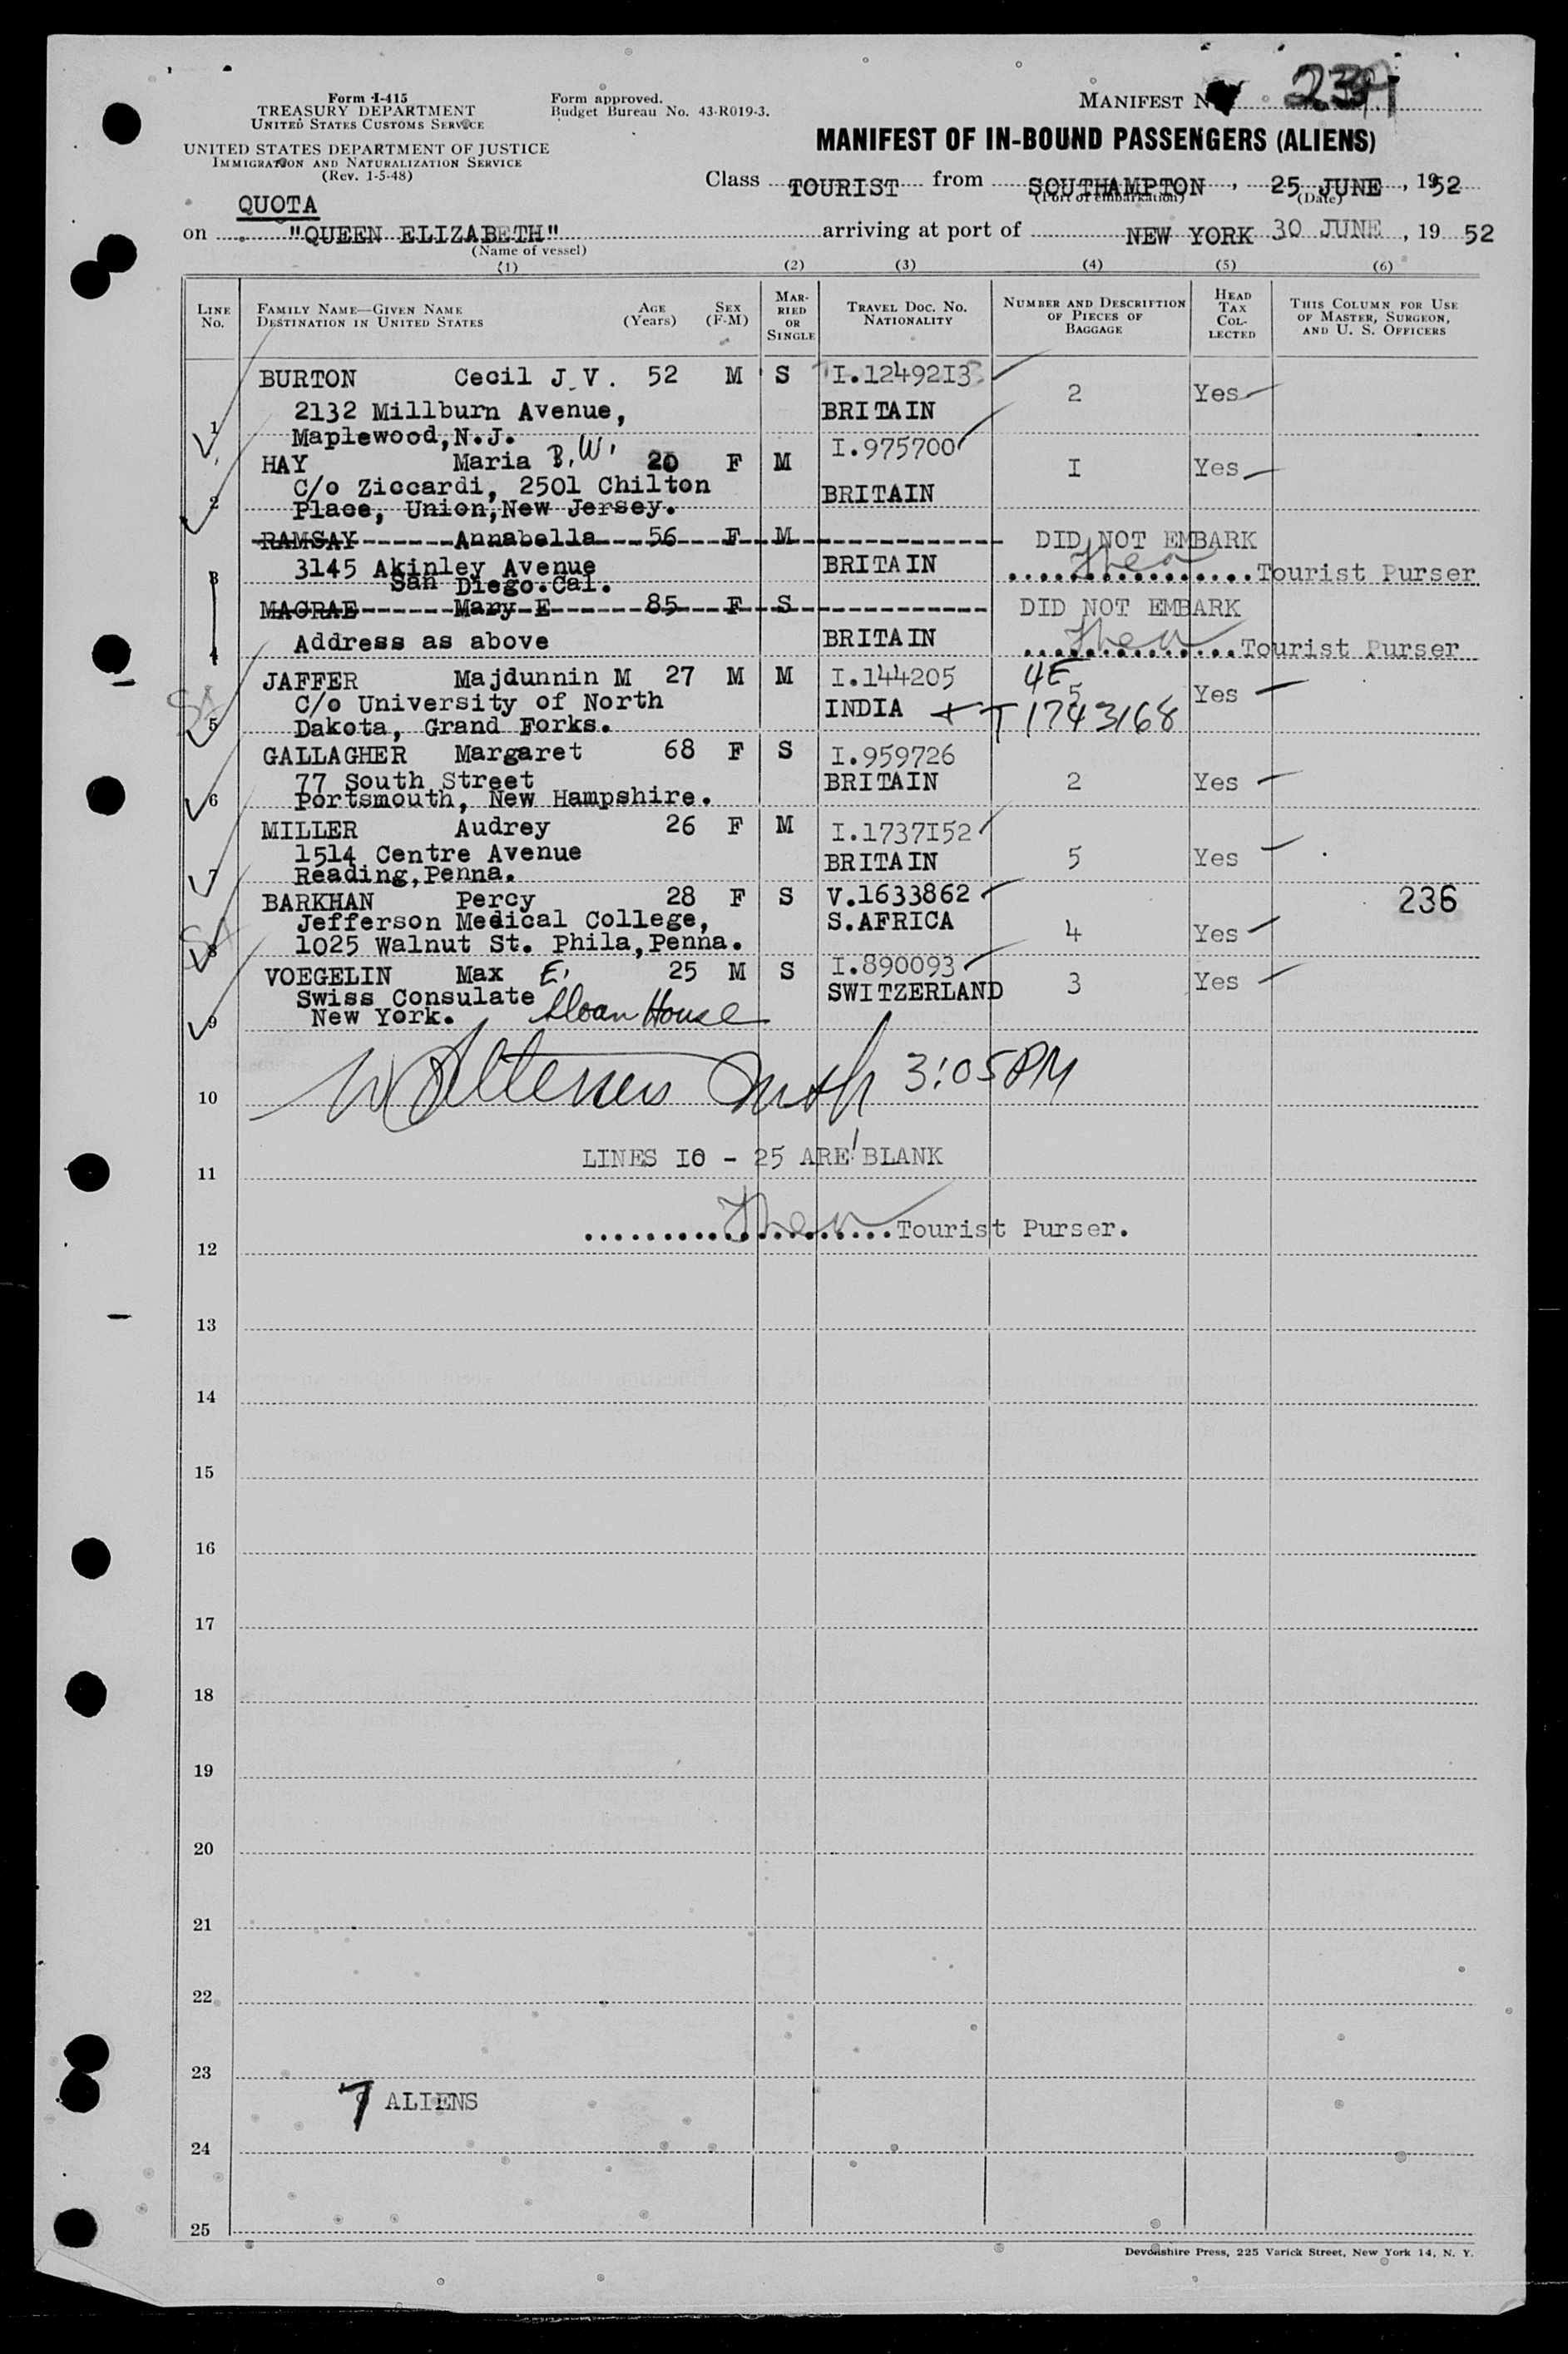 Form I-415
TREASURY DEPARTMENT
UNITED STATES CUSTOMS SERVICE
UNITED STATES DEPARTMENT OF JUSTICE
IMMIGRATION AND NATURALIZATION SERVICE
(Rev. 1-5-48)
Form approved.
Budget Bureau No. 43-R019-3.
MANIFEST
MANIFEST OF IN-BOUND PASSENGERS (ALIENS)
Class TOURIST from SOUTHAMPTON, 25 JUNE, 1952
(Port of embarkation) (Date)
QUOTA
on "QUEEN ELIZABETH" arriving at port of NEW YORK 30 JUNE, 19 52
(Name of vessel)
(1) (2) (3) (4) (5) (6)
LINE No. FAMILY NAME—GIVEN NAME DESTINATION IN UNITED STATES AGE (Years) SEX (F-M) MARRIED OR SINGLE TRAVEL DOC. NO. NATIONALITY NUMBER AND DESCRIPTION OF PIECES OF BAGGAGE HEAD TAX COLLECTED THIS COLUMN FOR USE OF MASTER, SURGEON, AND U. S. OFFICERS
BURTON Cecil J.V. 52 M S I.1249213
2132 Millburn Avenue, BRITAIN 2 Yes
1 Maplewood,N.J.
HAY Maria B.W. 20 F M I.975700
C/o Ziccardi, 2501 Chilton BRITAIN I Yes
2 Place, Union,New Jersey.
RAMSAY Annabella 56 F M DID NOT EMBARK
3145 Akinley Avenue BRITAIN
3 San Diego.Cal. Tourist Purser
MACRAE Mary E 85 F S DID NOT EMBARK
4 Address as above BRITAIN Tourist Purser
JAFFER Majdunnin M 27 M M I.144205 4E
C/o University of North INDIA 5 Yes
5 Dakota, Grand Forks. T 1743168
GALLAGHER Margaret 68 F S I.959726
77 South Street BRITAIN 2 Yes
6 Portsmouth, New Hampshire.
MILLER Audrey 26 F M I.1737152
1514 Centre Avenue BRITAIN 5 Yes
7 Reading,Penna.
BARKHAN Percy 28 F S V.1633862 236
Jefferson Medical College, S.AFRICA 4 Yes
8 1025 Walnut St. Phila,Penna.
VOEGELIN Max E. 25 M S I.890093
Swiss Consulate SWITZERLAND 3 Yes
9 New York. Sloan House
3:05 PM
10
LINES 10 - 25 ARE BLANK
11
Tourist Purser.
12
13
14
15
16
17
18
19
20
21
22
23
7 ALIENS
24
25
Devonshire Press, 225 Varick Street, New York 14, N. Y.